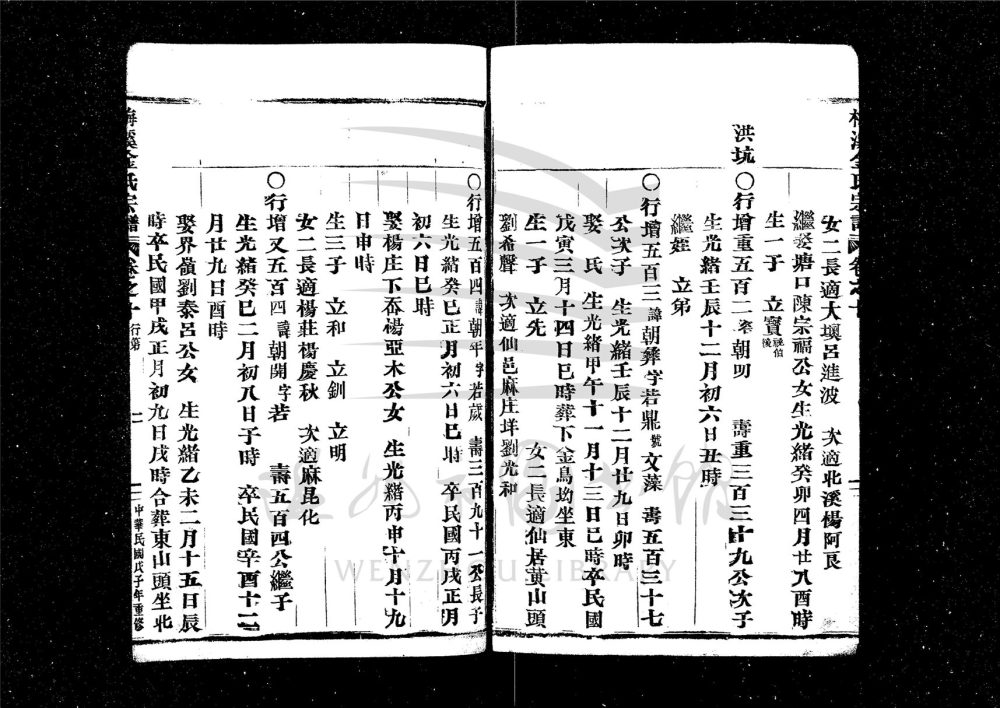 梅溪金氏宗譜 卷之十
女二長適大壩呂進波 次適北溪楊阿良
繼娶塘口陳宗福公女生光緒癸卯四月廿八酉時
生一子 立寶
洪坑〇行增重五百二 朝明 壽重三百三十九公次子
生光緒壬辰十二月初六日丑時
繼姪 立弟
〇行增五百三諱朝彝字若鼎號文藻 壽五百三十七
公次子 生光緒壬辰十二月廿九日卯時
娶 氏 生光緒甲午十一月十三日巳時卒民國
戊寅三月十四日巳時葬下金鳥均坐東
生一子 立先 女二長適仙居黃山頭
劉希聲 次適仙邑麻庄垟劉光和
〇行增五百四諱朝年字若歲 壽三百九十一公長子
生光緒癸巳正月初六日巳時 卒民國丙戌正月
初六日巳時
娶楊庄下岙楊亞木公女 生光緒丙申十月十九
日申時
生三子 立和 立釧 立明
女二長適楊莊楊慶秋 次適麻昆化
〇行增又五百四諱朝開字若 壽五百四公繼子
生光緒癸巳二月初八日子時 卒民國辛酉十二
月廿九日酉時
娶界嶺劉泰呂公女 生光緒乙未二月十五日辰
時卒民國甲戌正月初九日戌時合葬東山頭坐北
梅溪金氏宗譜 卷之十 行第 二 中華民國戊子年重修
WENZHOU LIBRARY